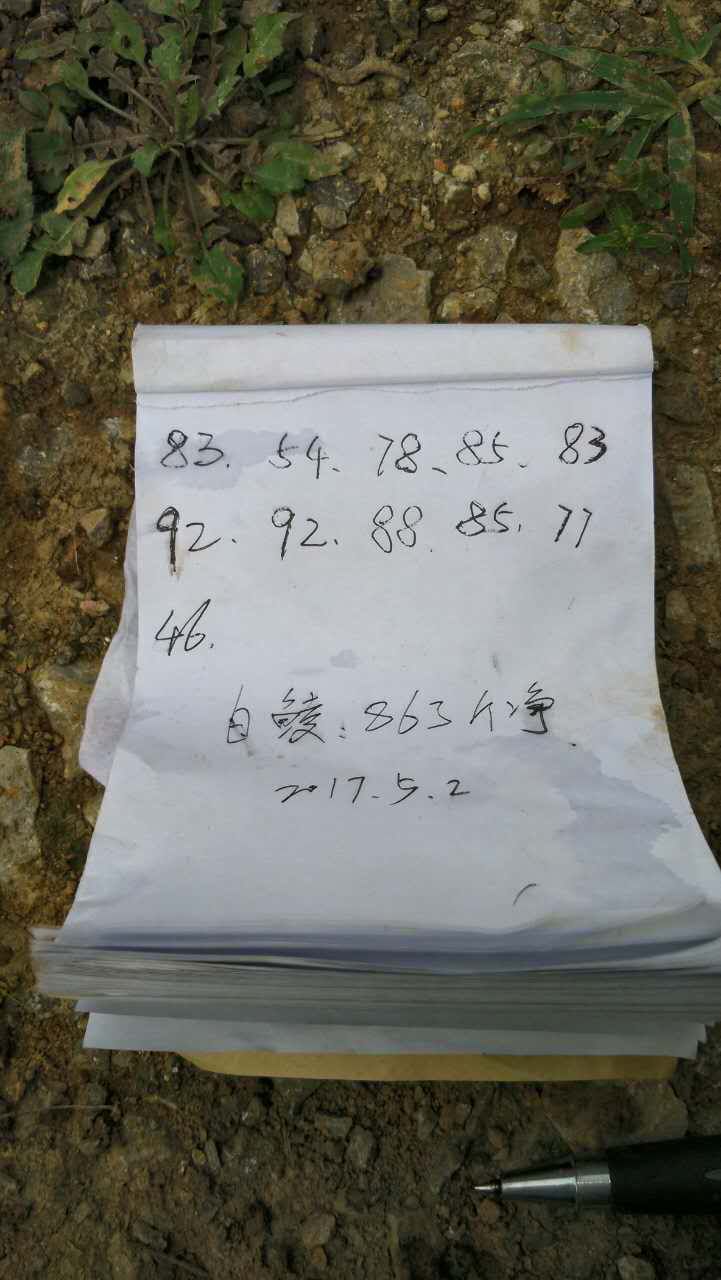 83. 54、78、85. 83
92. 92. 88. 85. 77
46.
白鲮:863斤净.
2017.5.2